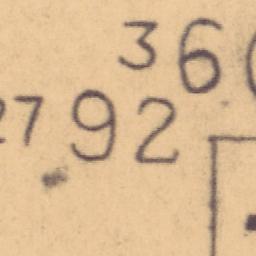 36
27 92